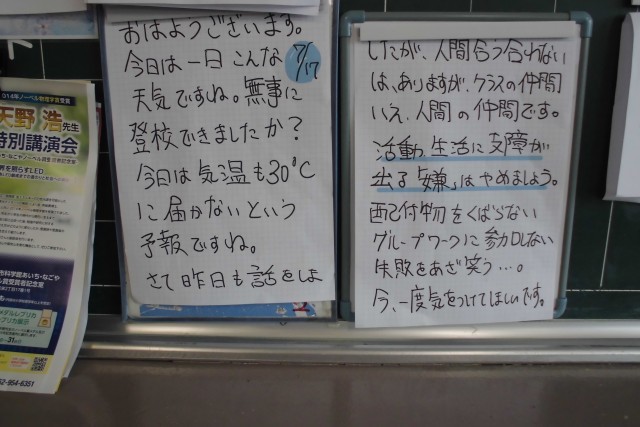 おはようございます。
今日は一日こんな 7/17
天気ですね。無事に
登校できましたか?
今日は気温も30℃
に届かないという
予報ですね。
さて昨日も話をしま
したが、人間合う合わない
は、ありますが、クラスの仲間
いえ、人間の仲間です。
活動、生活に支障が
出る「嫌」はやめましょう。
配付物をくばらない
グループワークに参加しない
失敗をあざ笑う…。
今、一度気をつけてほしいです。
014年ノーベル物理学賞受賞
天野 浩先生
特別講演会
界を照らすLED
市科学館あいち・なごや
ル賞受賞者記念室
デルレプリカ
プリカ展示
52-954-6351